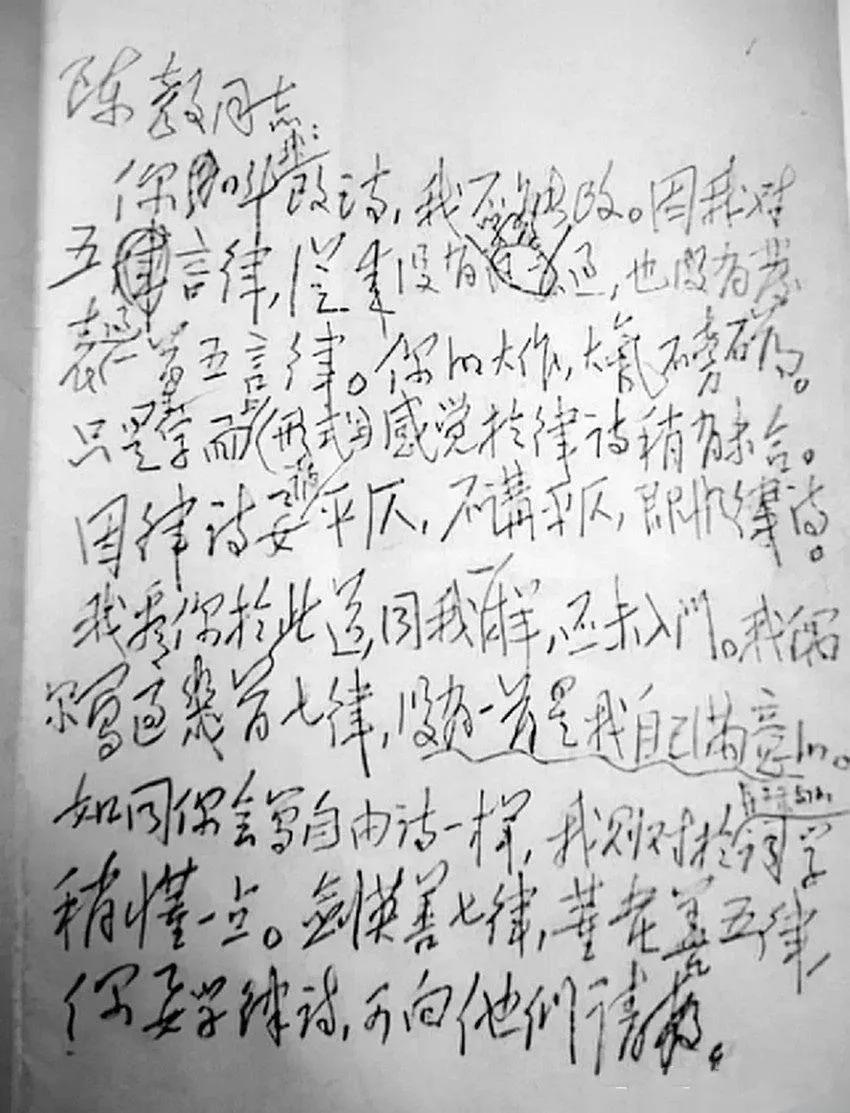 陈毅同志:
你叫我改诗,我不能改。因我对
五言律,从来没有学习过,也没有发
表过一首五言律。你的大作,大气磅礴。
只是在字面上(形式上)感觉于律诗稍有未合。
因律诗要讲平仄,不讲平仄,即非律诗。
我看你于此道,同我一样,还未入门。我偶
尔写过几首七律,没有一首是我自己满意的。
如同你会写自由诗一样,我则对于长短句的词学
稍懂一点。剑英善七律,董老善五律,
你要学律诗,可向他们请教。